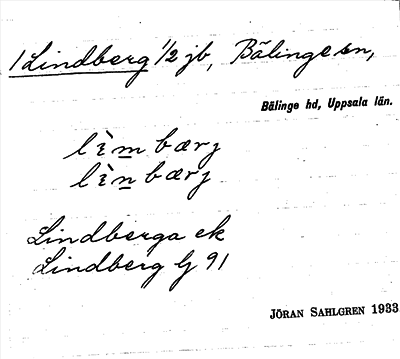 1 Lindberg 1/2 jb, Bälinge sn,
Bälinge hd, Uppsala län.
lìm bærj
lìn bærj
Lindberga ek
Lindberg lj 91
JÖRAN SAHLGREN 1933